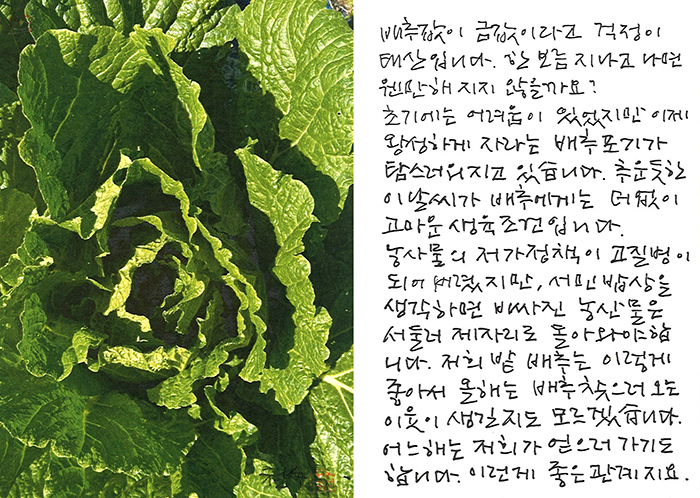 배추값이 금값이라고 걱정이
태산입니다. 한 보름 지나고 나면
웬만해 지지 않을까요?
초기에는 어려움이 있었지만 이제
왕성하게 자라는 배추포기가
탐스러워지고 있습니다. 추운듯한
이날씨가 배추에게는 더없이
고마운 생육조건입니다.
농산물의 저가정책이 고질병이
되어 버렸지만, 서민밥상을
생각하면 비싸진 농산물은
서둘러 제자리로 돌아와야합
니다. 저희 밭 배추는 이렇게
좋아서 올해는 배추찾으러 오는
이웃이 생길지도 모르겠습니다.
어느해는 저희가 얻으러 가기도
합니다. 이런게 좋은관계지요.